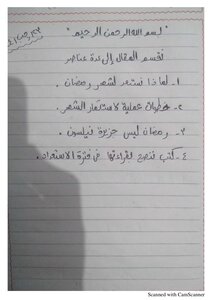 "بسم الله الرحمن الرحيم"
نقسم المقال إلى عدة عناصر
١- لماذا نستعد لشهر رمضان.
٢- خطوات عملية لاستثمار الشهر.
٣- رمضان ليس جزيرة نيلسون.
٤- كتب ننصح بقراءتها في فترة الاستعداد.
Scanned with CamScanner